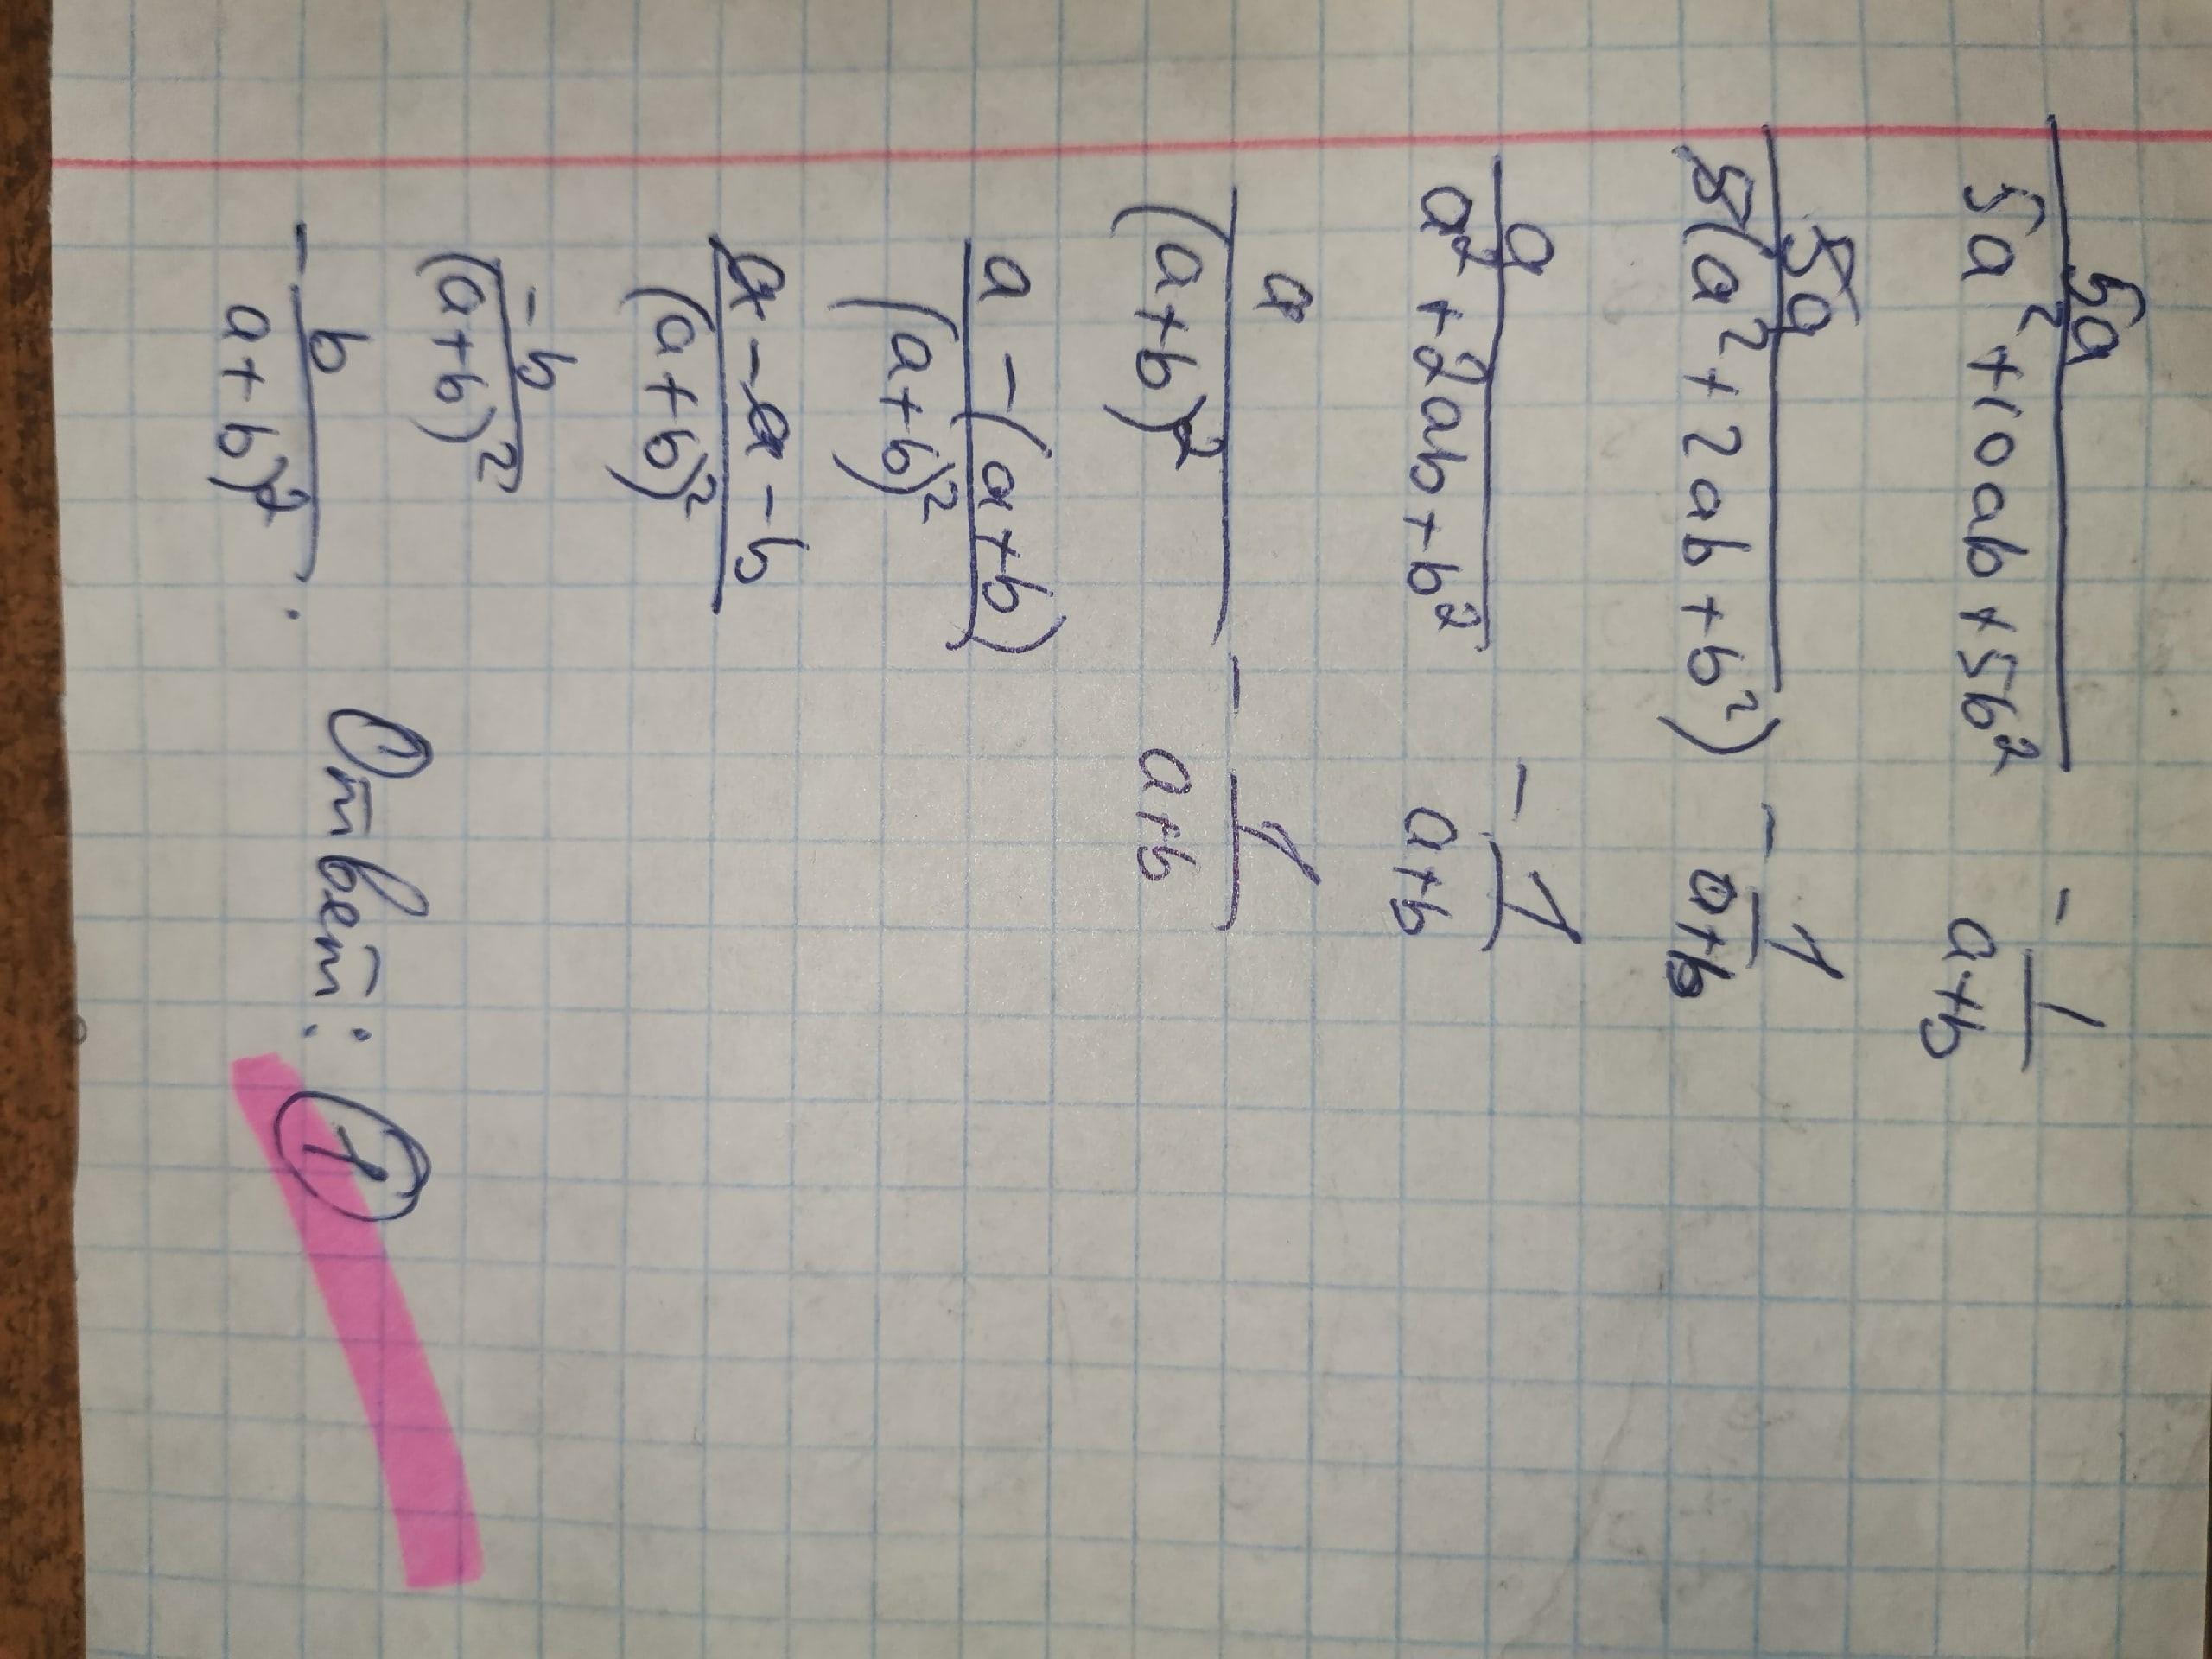 5a/(5a²+10ab+5b²) - 1/(a+b)
5a/(5(a²+2ab+b²)) - 1/(a+b)
a/(a²+2ab+b²) - 1/(a+b)
a/(a+b)² - 1/(a+b)
(a-(a+b))/(a+b)²
(a-a-b)/(a+b)²
-b/(a+b)²
- b/(a+b)². Ответ: 1